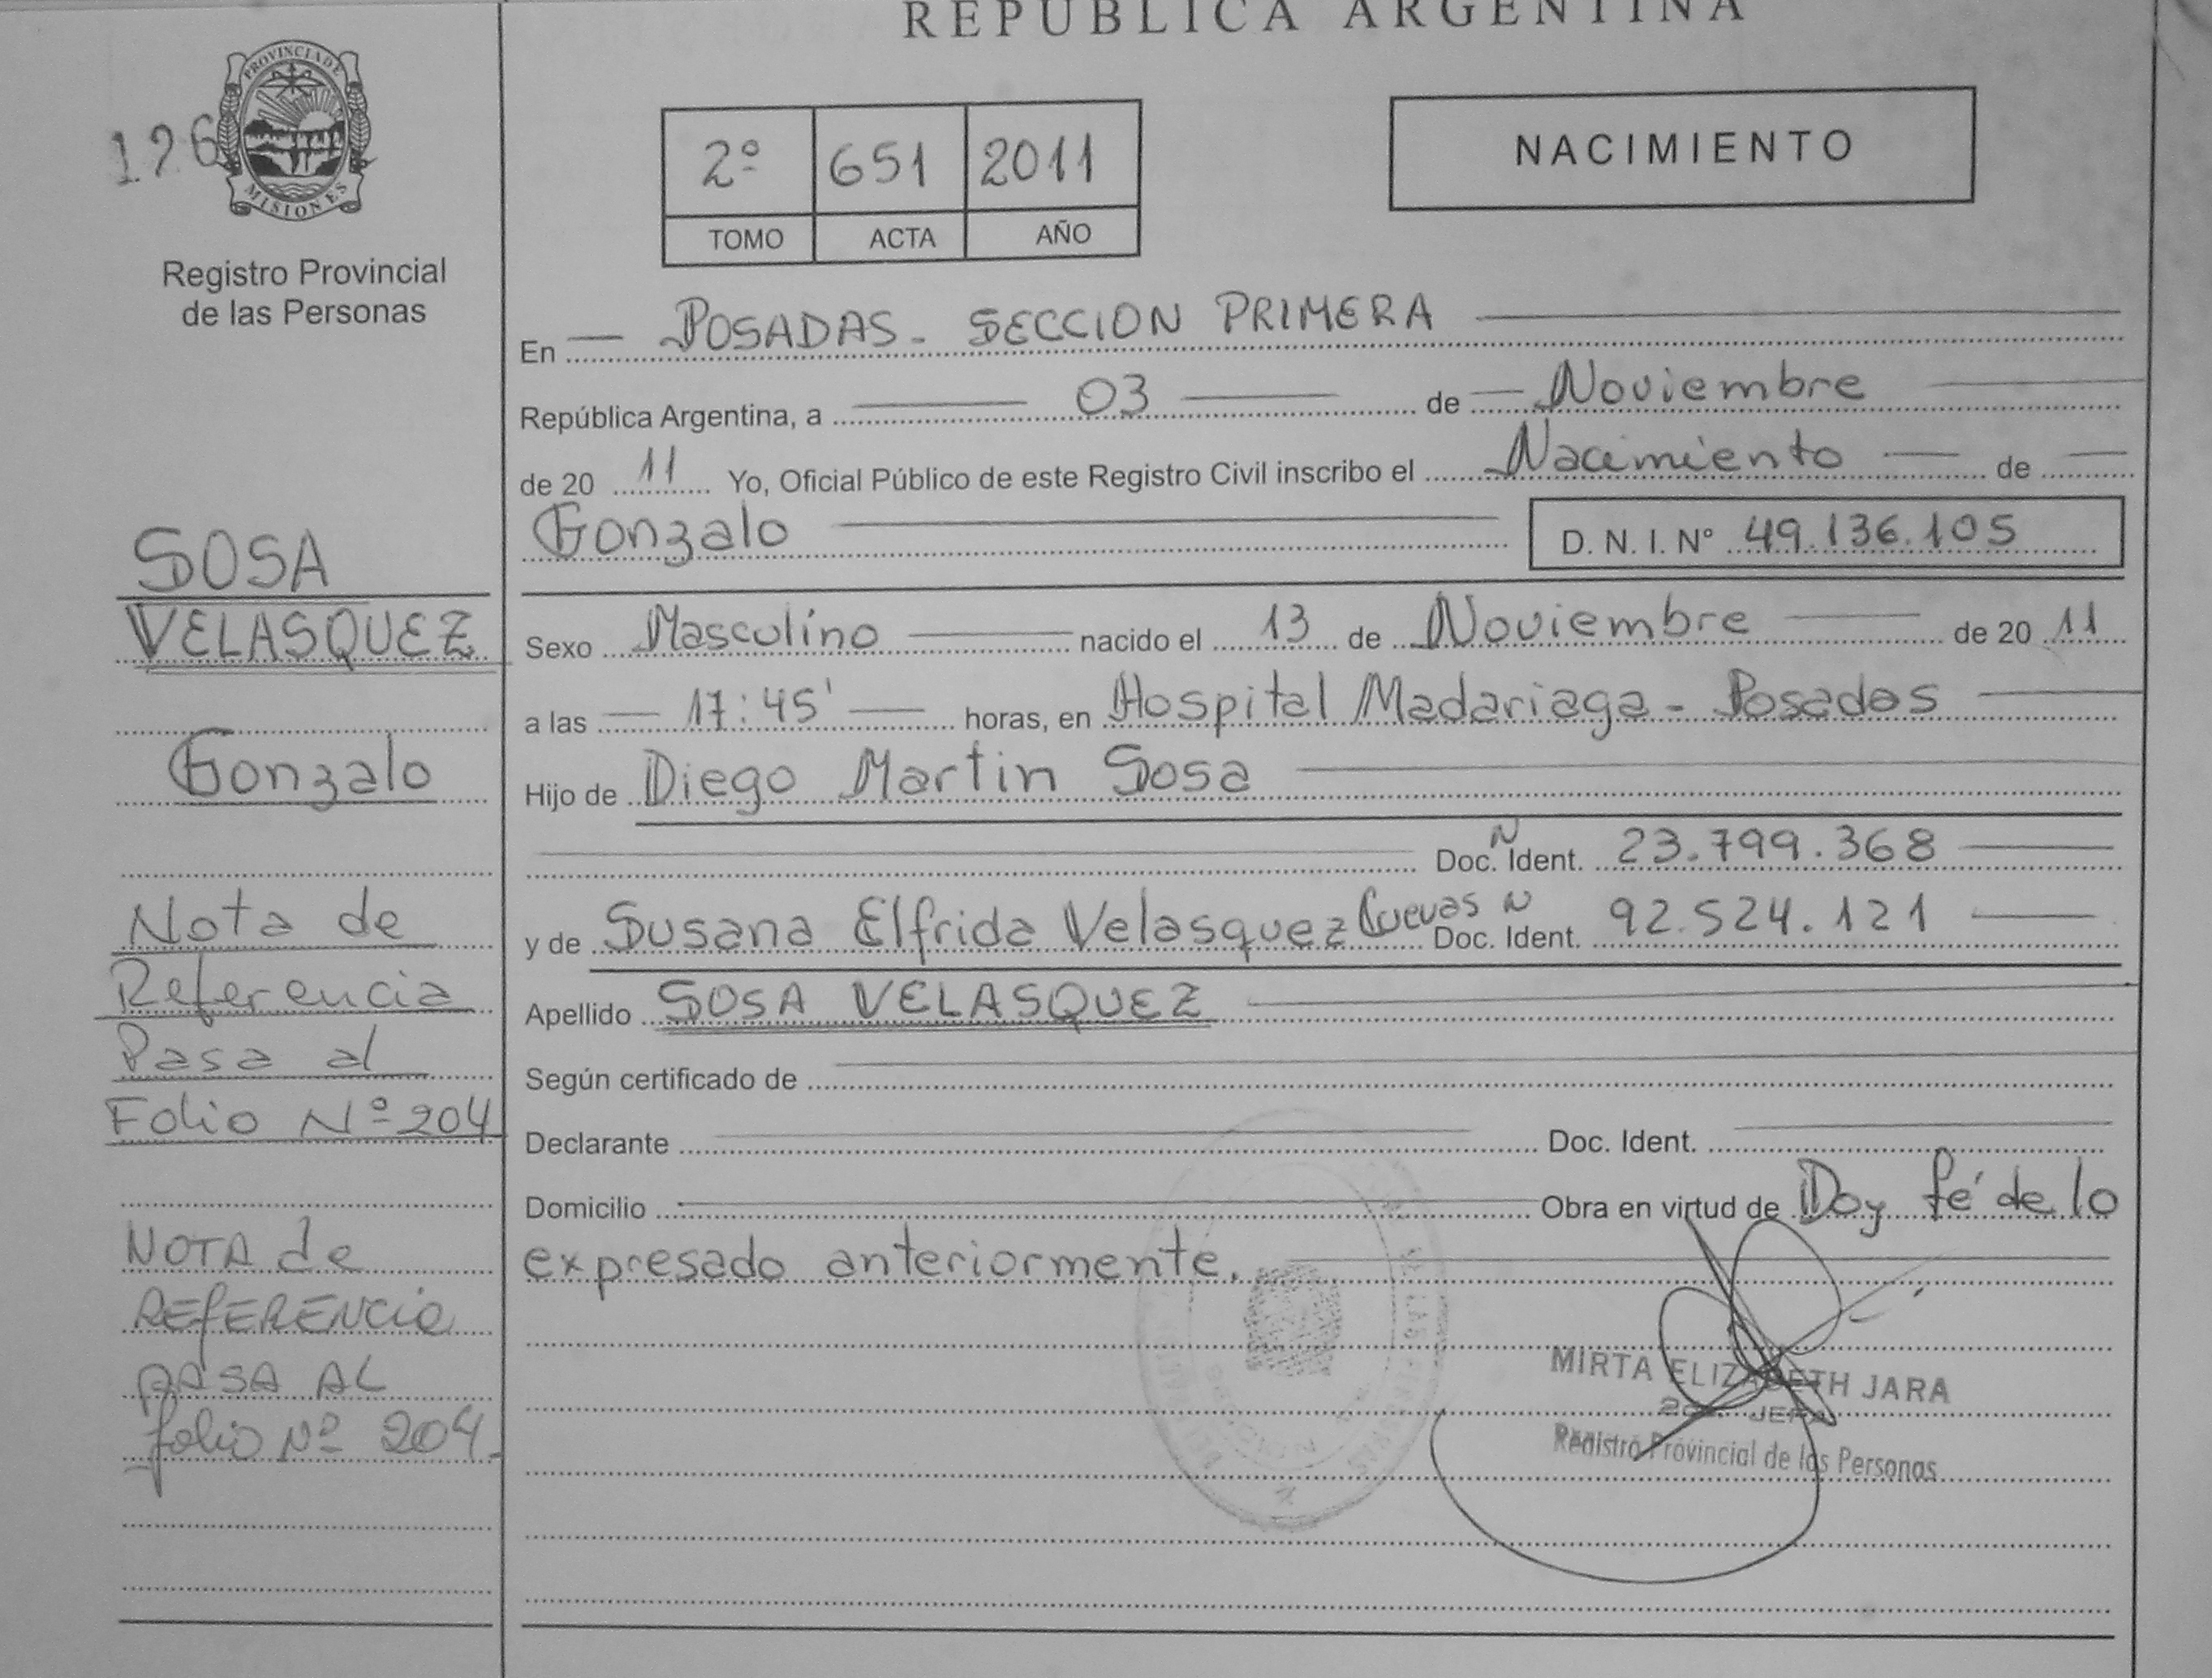 REPUBLICA ARGENTINA
PROVINCIA DE
MISIONES
126
Registro Provincial
de las Personas
2º 651 2011
TOMO ACTA AÑO
NACIMIENTO
En POSADAS - SECCION PRIMERA
República Argentina, a 03 de Noviembre
de 20 11 Yo, Oficial Público de este Registro Civil inscribo el Nacimiento de
Gonzalo D. N. I. Nº 49.136.105
Sexo Masculino nacido el 13 de Noviembre de 20 11
a las 17:45' horas, en Hospital Madariaga - Posadas
Hijo de Diego Martin Sosa
N
Doc. Ident. 23.799.368
y de Susana Elfrida Velasquez Cuevas N Doc. Ident. 92.524.121
Apellido SOSA VELASQUEZ
Según certificado de
Declarante Doc. Ident.
Domicilio Obra en virtud de Doy fé de lo
expresado anteriormente.
MIRTA ELIZABETH JARA
JEFA
Registro Provincial de las Personas
SOSA
VELASQUEZ
Gonzalo
Nota de
Referencia
Pasa al
Folio Nº 204
NOTA de
REFERENCIA
PASA AL
folio Nº 204.